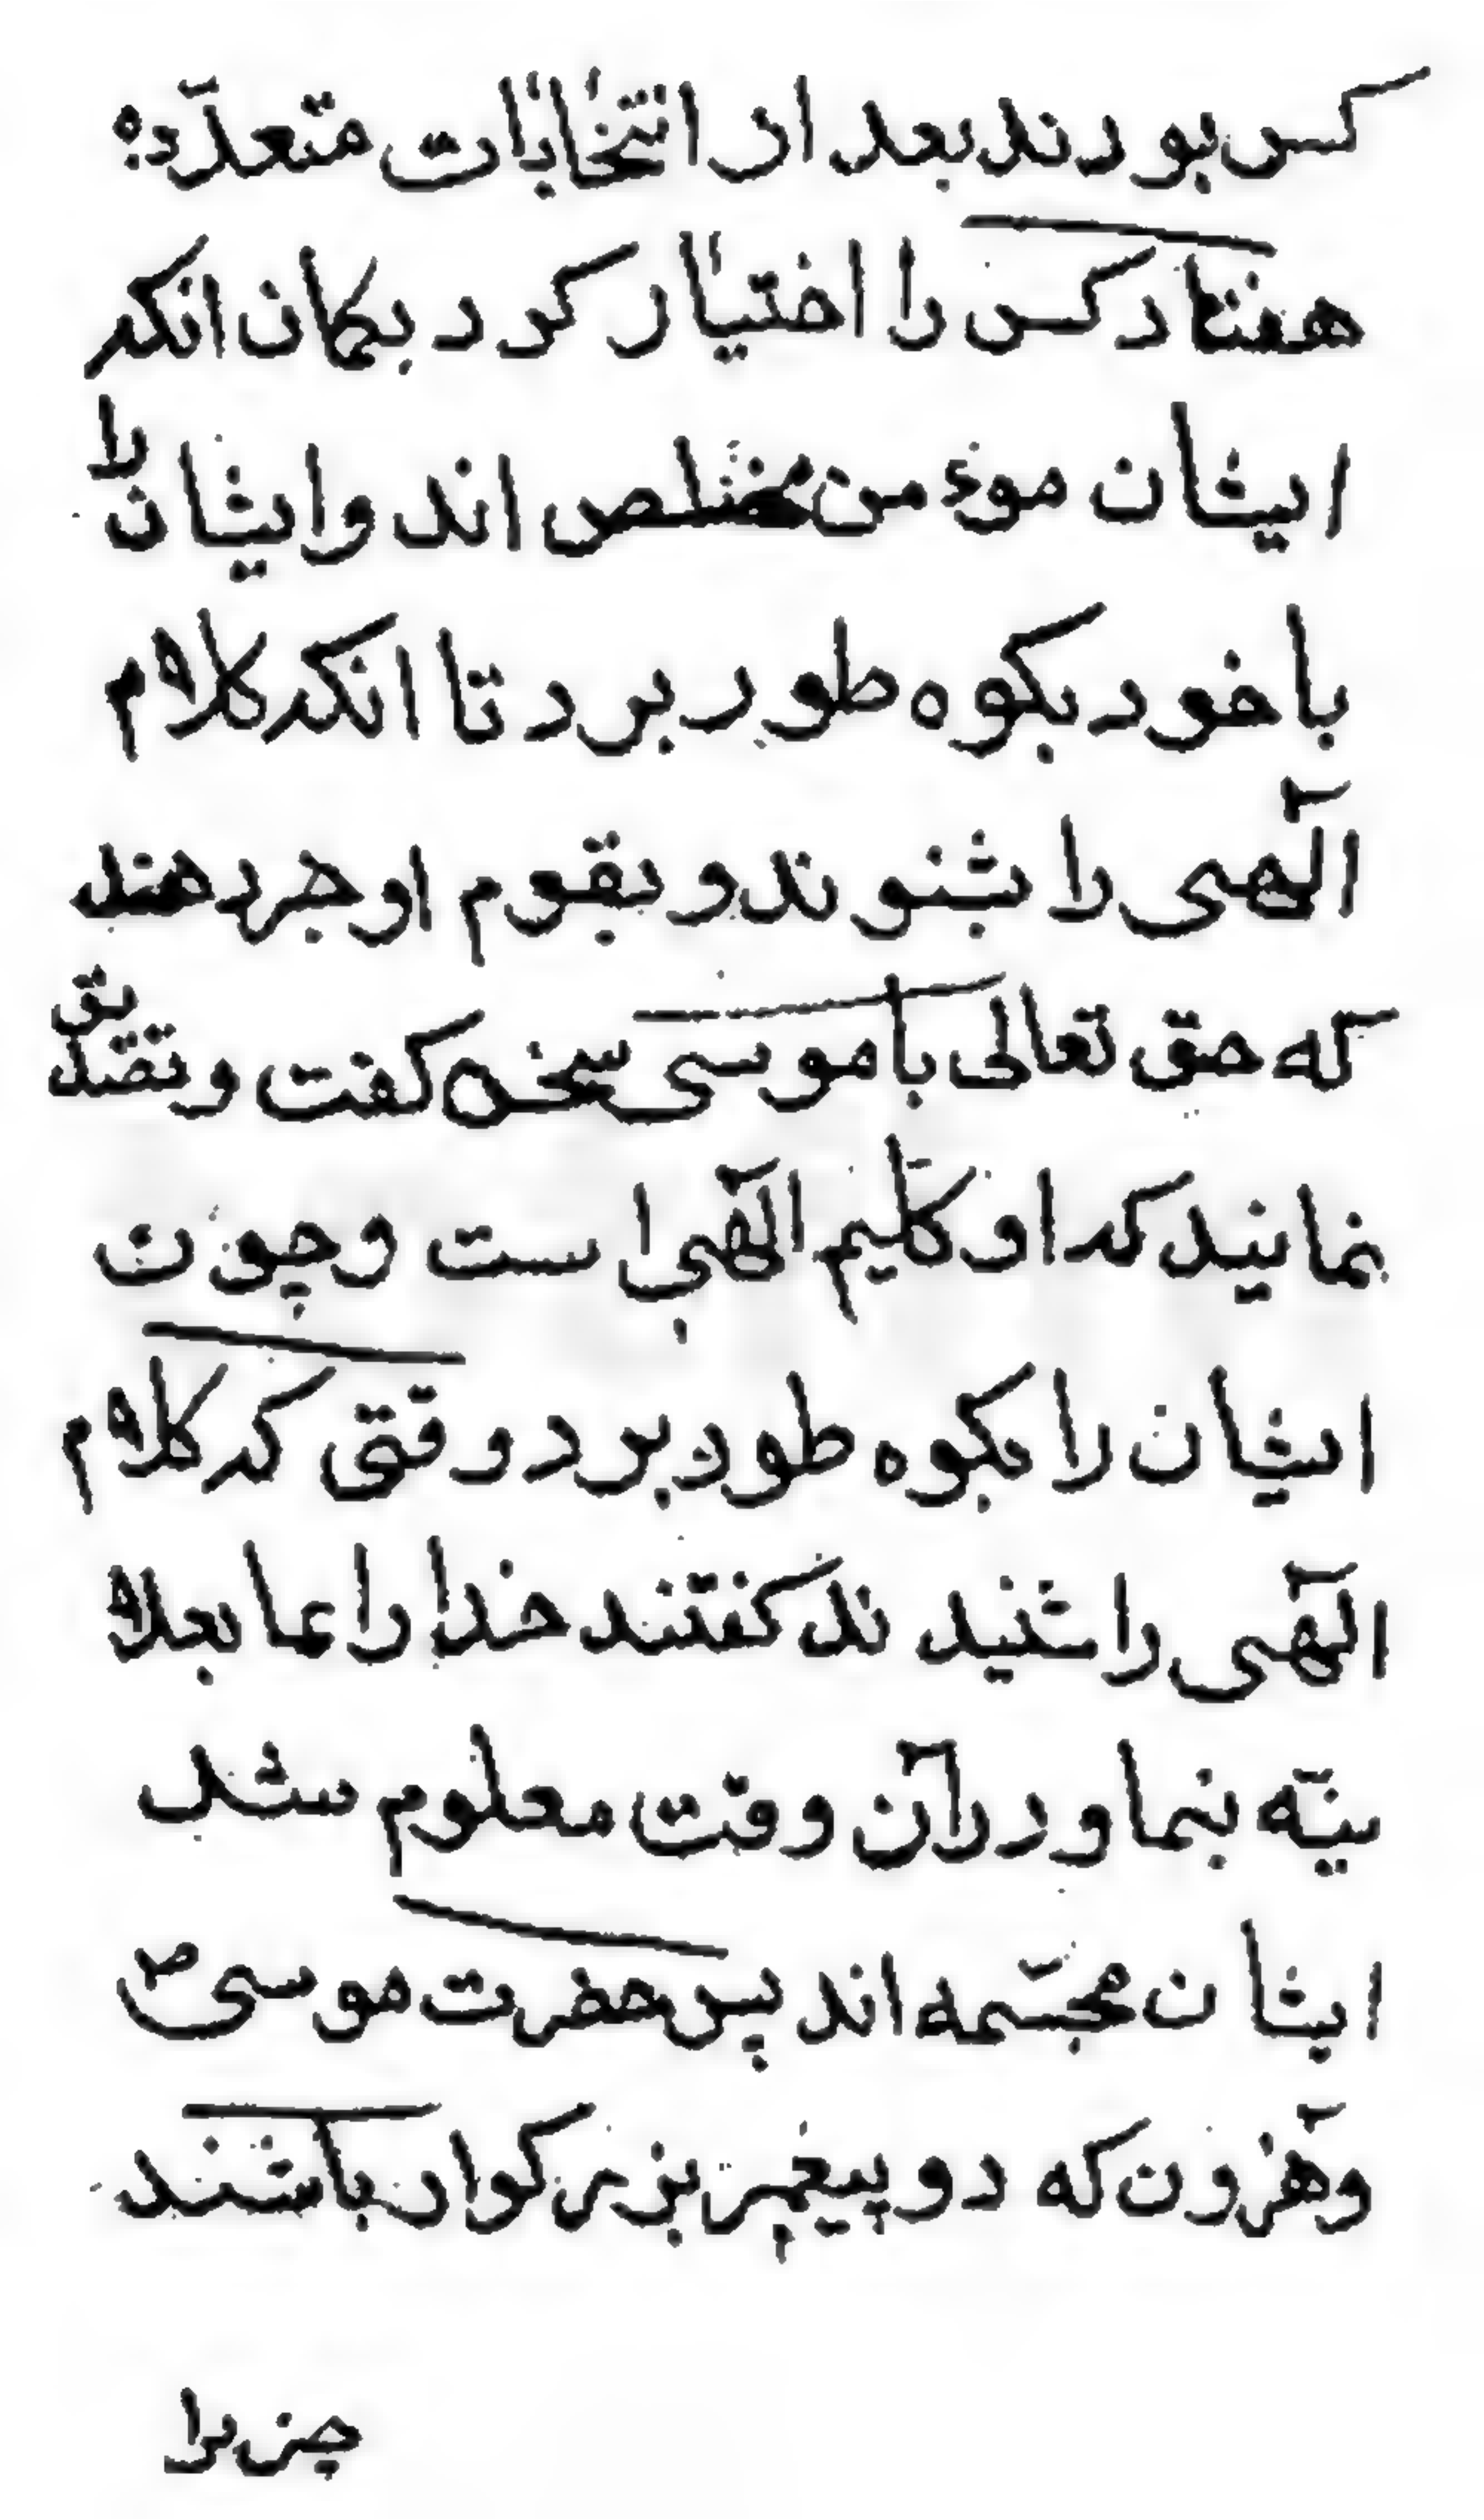 کس بودند بعد از انتخابات متعدّده
هفتاد کس را اختیار کرد بکمان انکه
ایشان موءمن مخلص اند و ایشان را
با خود بکوه طور برد تا انکه کلام
آلهی را بشنوند و بقوم او خبر دهند
که حق تعالی با موسی سخن کفت و تصدیق
نمایند که او کلیم الٓهی است و چون
ایشان را بکوه طور برد وقتی که کلام
الٓهی را شنیدند کفتند خدا را بما بعلا
نیّه بنما و در آن وقت معلوم شد
ایشان مجسّمه اند پس حضرت موسی ص
و هٓرون که دو پیغمبر بزرکوار باشند
چیز را